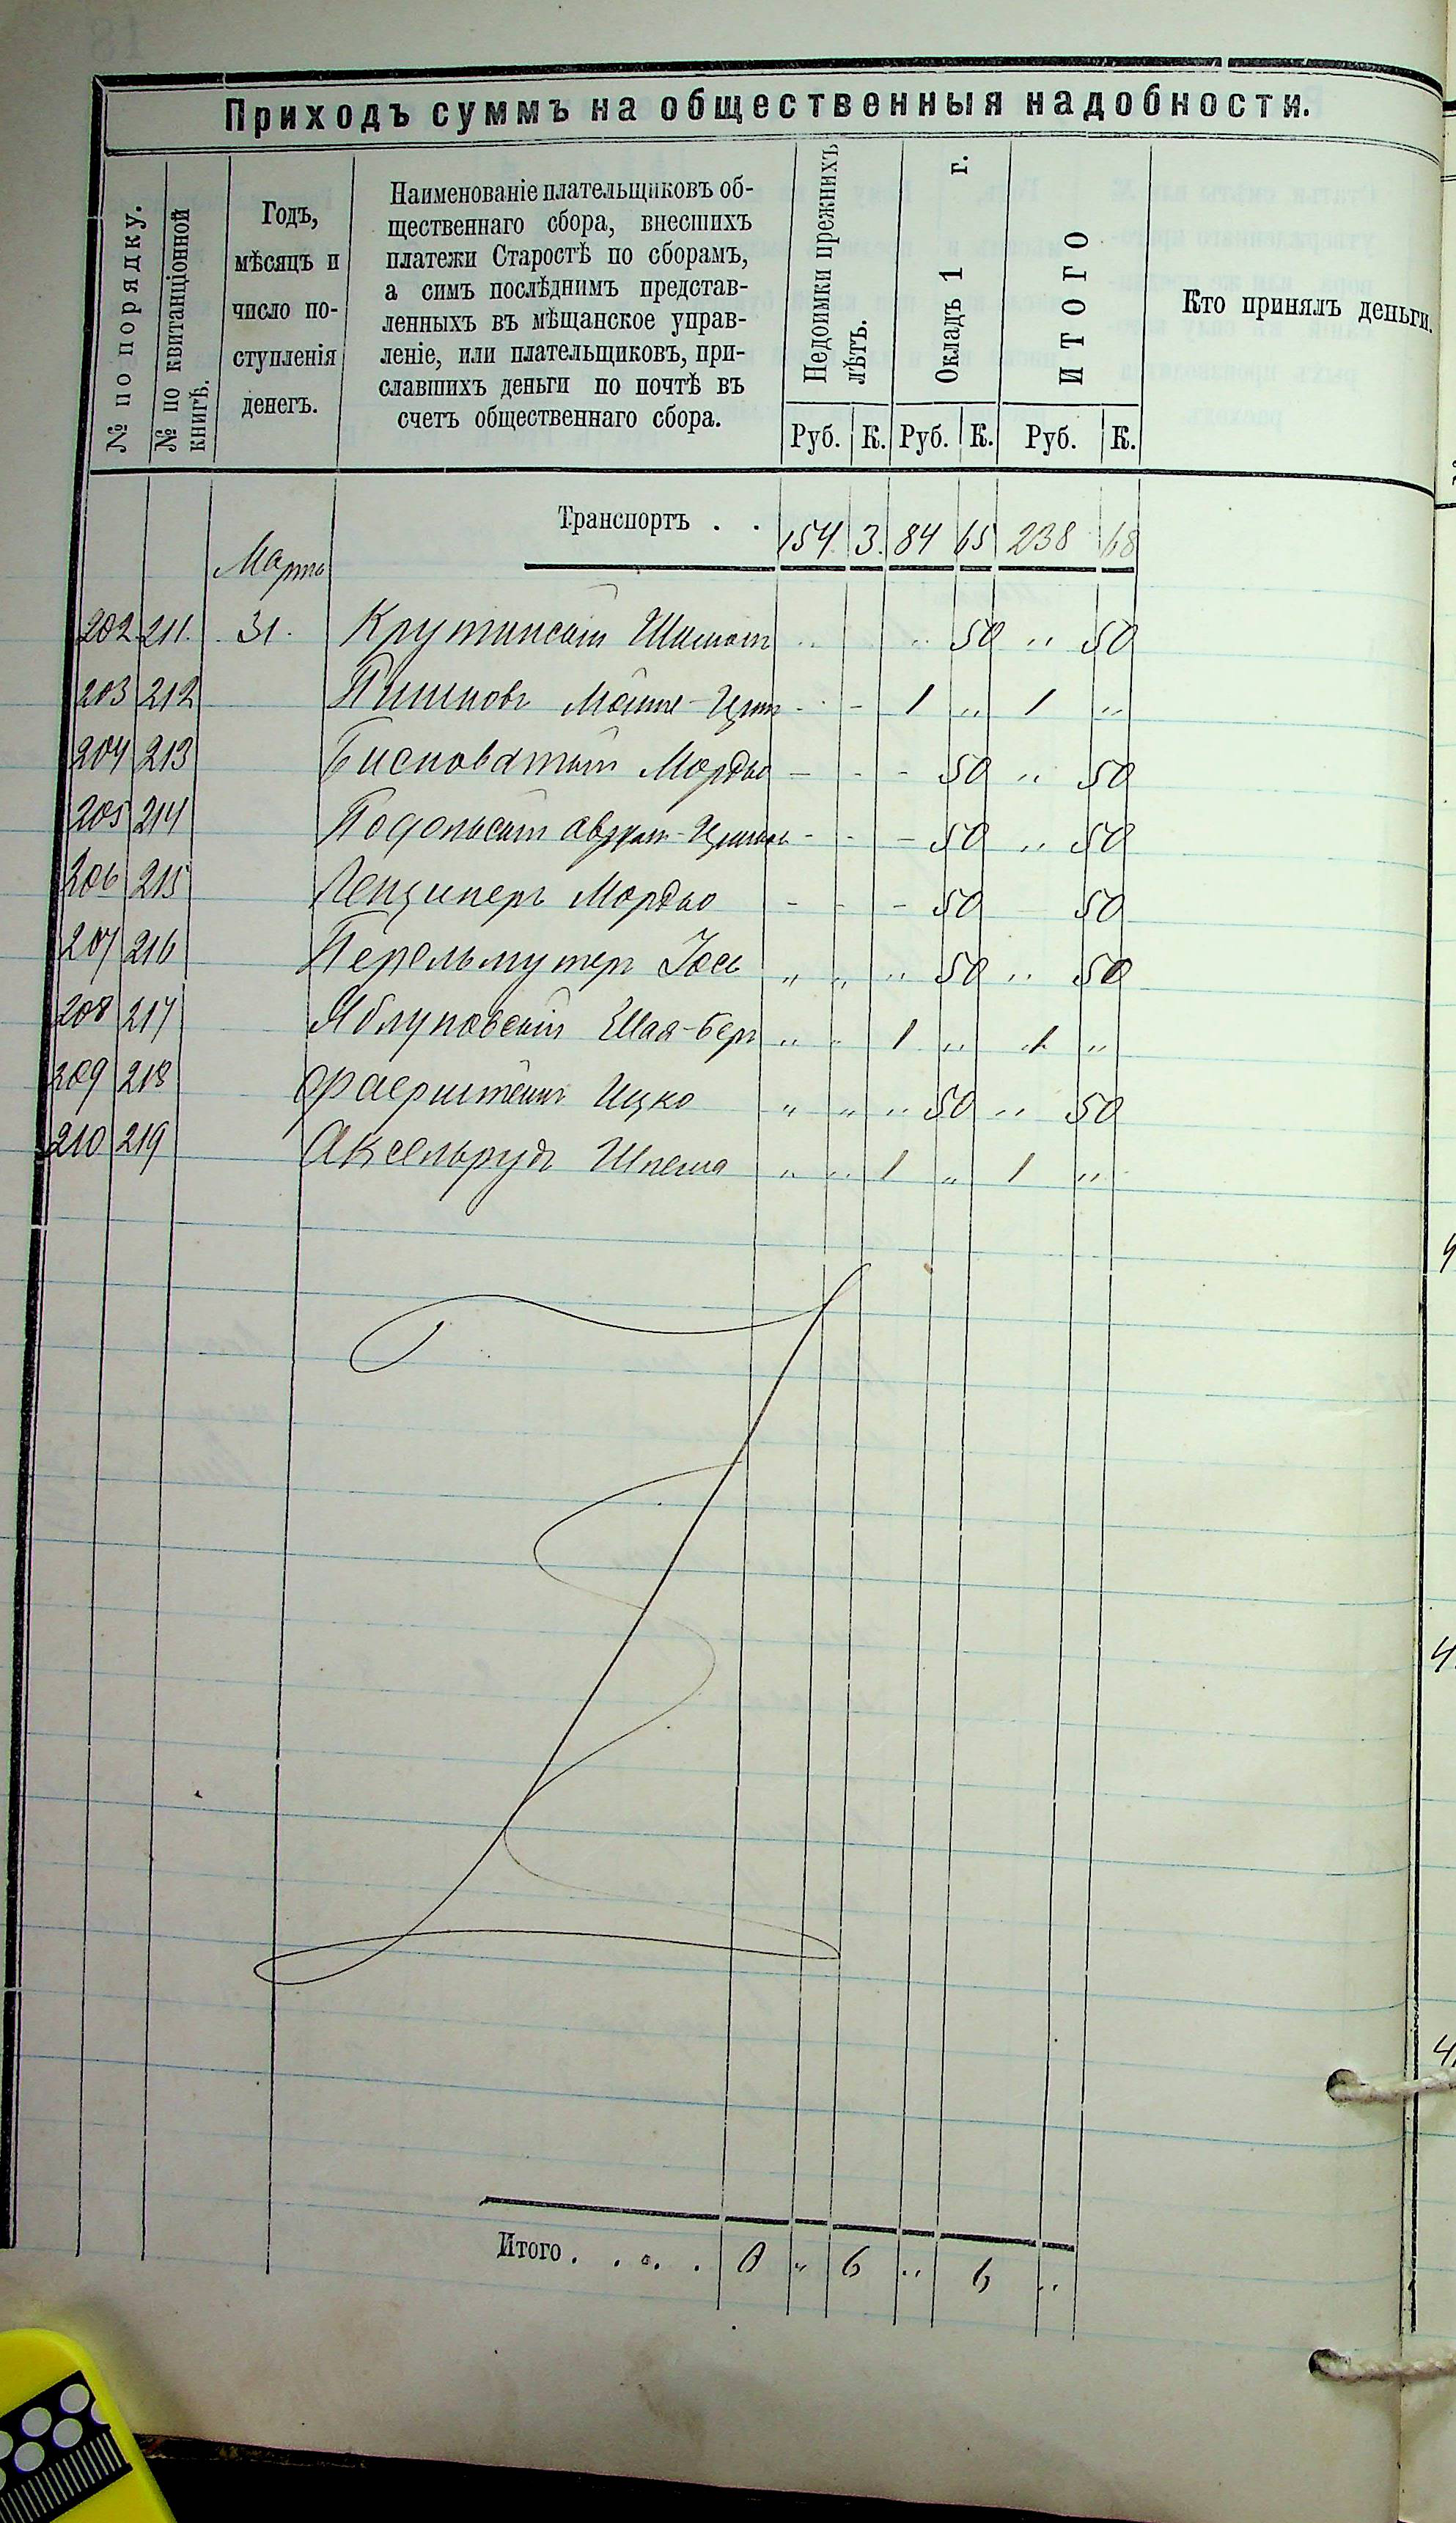 Приходъ суммъ на общественныя надобности.
№ по порядку.
№ по квитанціонной
книгѣ.
Годъ,
мѣсяцъ и
число по-
ступленія
денегъ.
Наименованіе плательщиковъ об-
щественнаго сбора, внесшихъ
платежи Старостѣ по сборамъ,
а симъ послѣднимъ представ-
ленныхъ въ мѣщанское управ-
леніе, или плательщиковъ, при-
славшихъ деньги по почтѣ въ
счетъ общественнаго сбора.
Недоимки прежнихъ
лѣтъ.
Окладъ 1 г.
ИТОГО
Кто принялъ деньги.
Руб. К. Руб. К. Руб. К.
Транспортъ . . 154 3. 84 65 238 68
Марта
202 211. 31. .. .. 50 .. 50
203 212 - - 1 .. 1 ..
204 213 Бисноватый Мордко - - - 50 .. 50
205 214 Подольскій - - - 50 .. 50
206 215 Мордко - - - 50 50
207 216 Перельмутеръ Іось .. .. .. 50 .. 50
208 217 Яблуновскій Шая-Беръ .. .. 1 .. 1 ..
209 218 Фаерштейнъ Ицко .. .. .. 50 .. 50
210 219 Аксельрудъ Шлема .. .. 1 .. 1 ..
Итого . . . . 0 .. 6 .. 6 ..